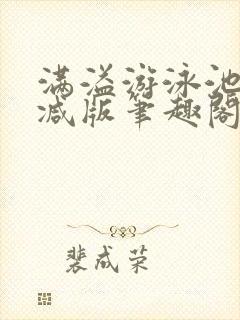 满溢游泳池
减版笔趣阁
裴成荣